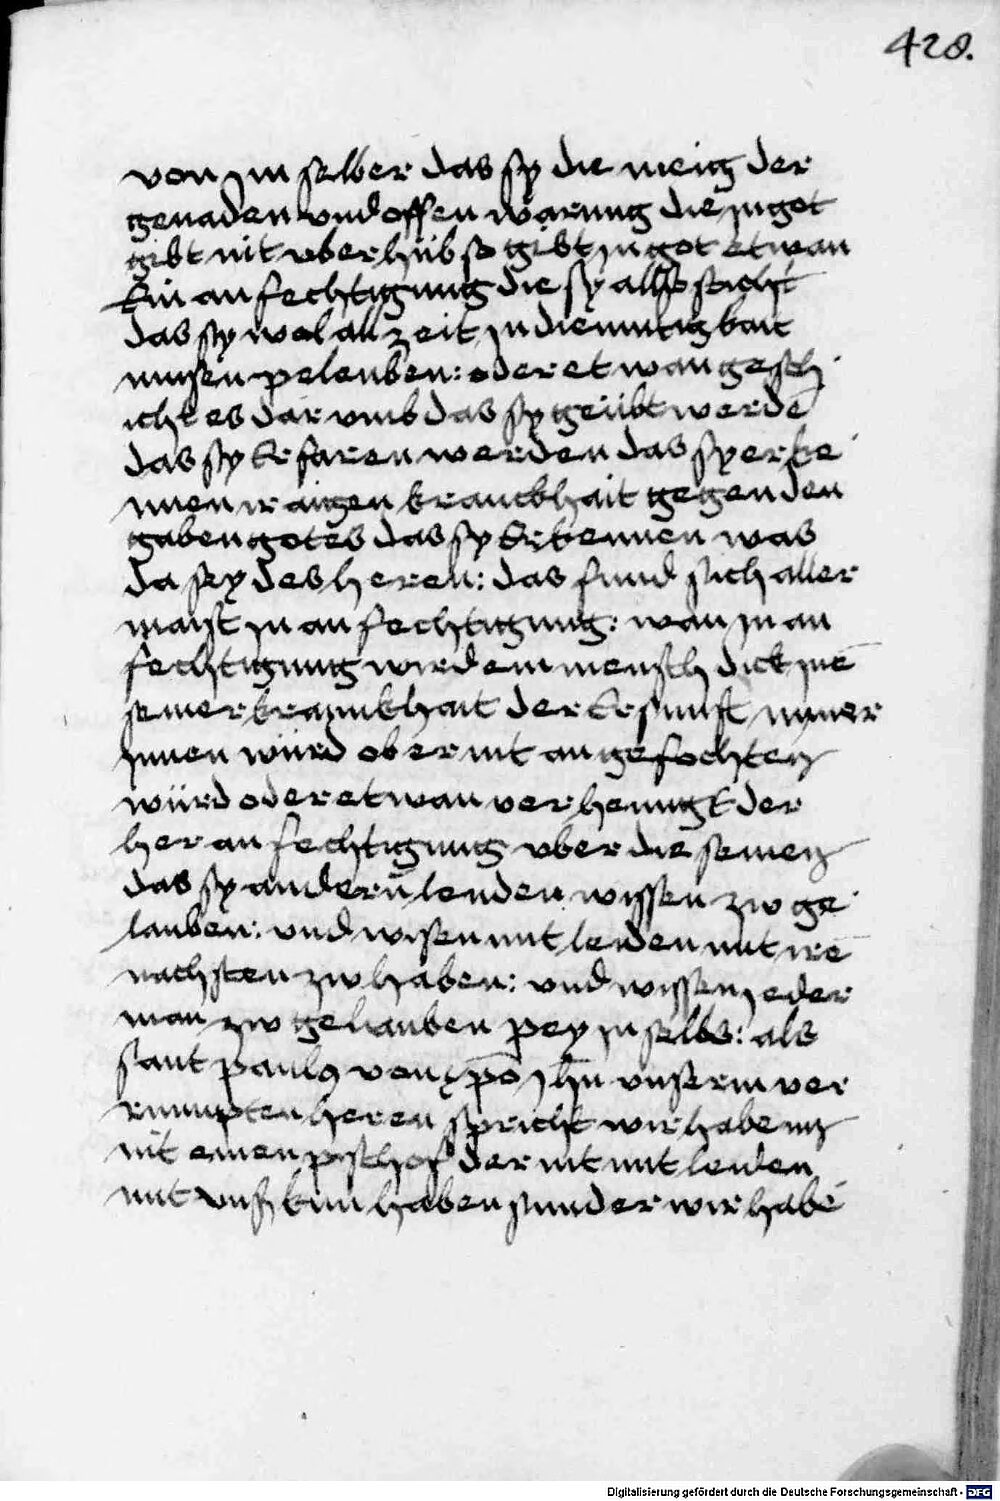 428.
von im selber das sy die menig der
genaden und offen warung die in got
gibt nit uber hüb so gibt in got etwan
Ein an fechtigung die sy alls sticht
das sy wol all zeit in diemutigkait
musen peleuben: oder etwan gesch
icht es dar umb das sy geübt werdē
das sy Erfaren werden das sy erke
nnen ir aigen kranckhait gegen den
gaben gotes das sy Erkennen was
da sey des heren: das fund sich aller
maist in an fechtigung: wan in an
fechtigung wird ein mensch dick inē
seiner krannkhait der Er sunst nymer
innen würd ob er nit an gefochten
würd oder etwan ver hengt der
her an fechtigung uber die seinen
das sy andern leuden wissen zw ge
lauben: und wisen mit leiden mit irē
nachsten zw haben: und wissen ieder
man zw gelauben pey in selbs: als
sant paulus von xpō ihū unserm ver
rumpten heren spricht wir haben
nit einen pischof der nit mit leiden
mit uns kun haben sunder wir habē
Digitalisierung gefördert durch die Deutsche Forschungsgemeinschaft - DFG